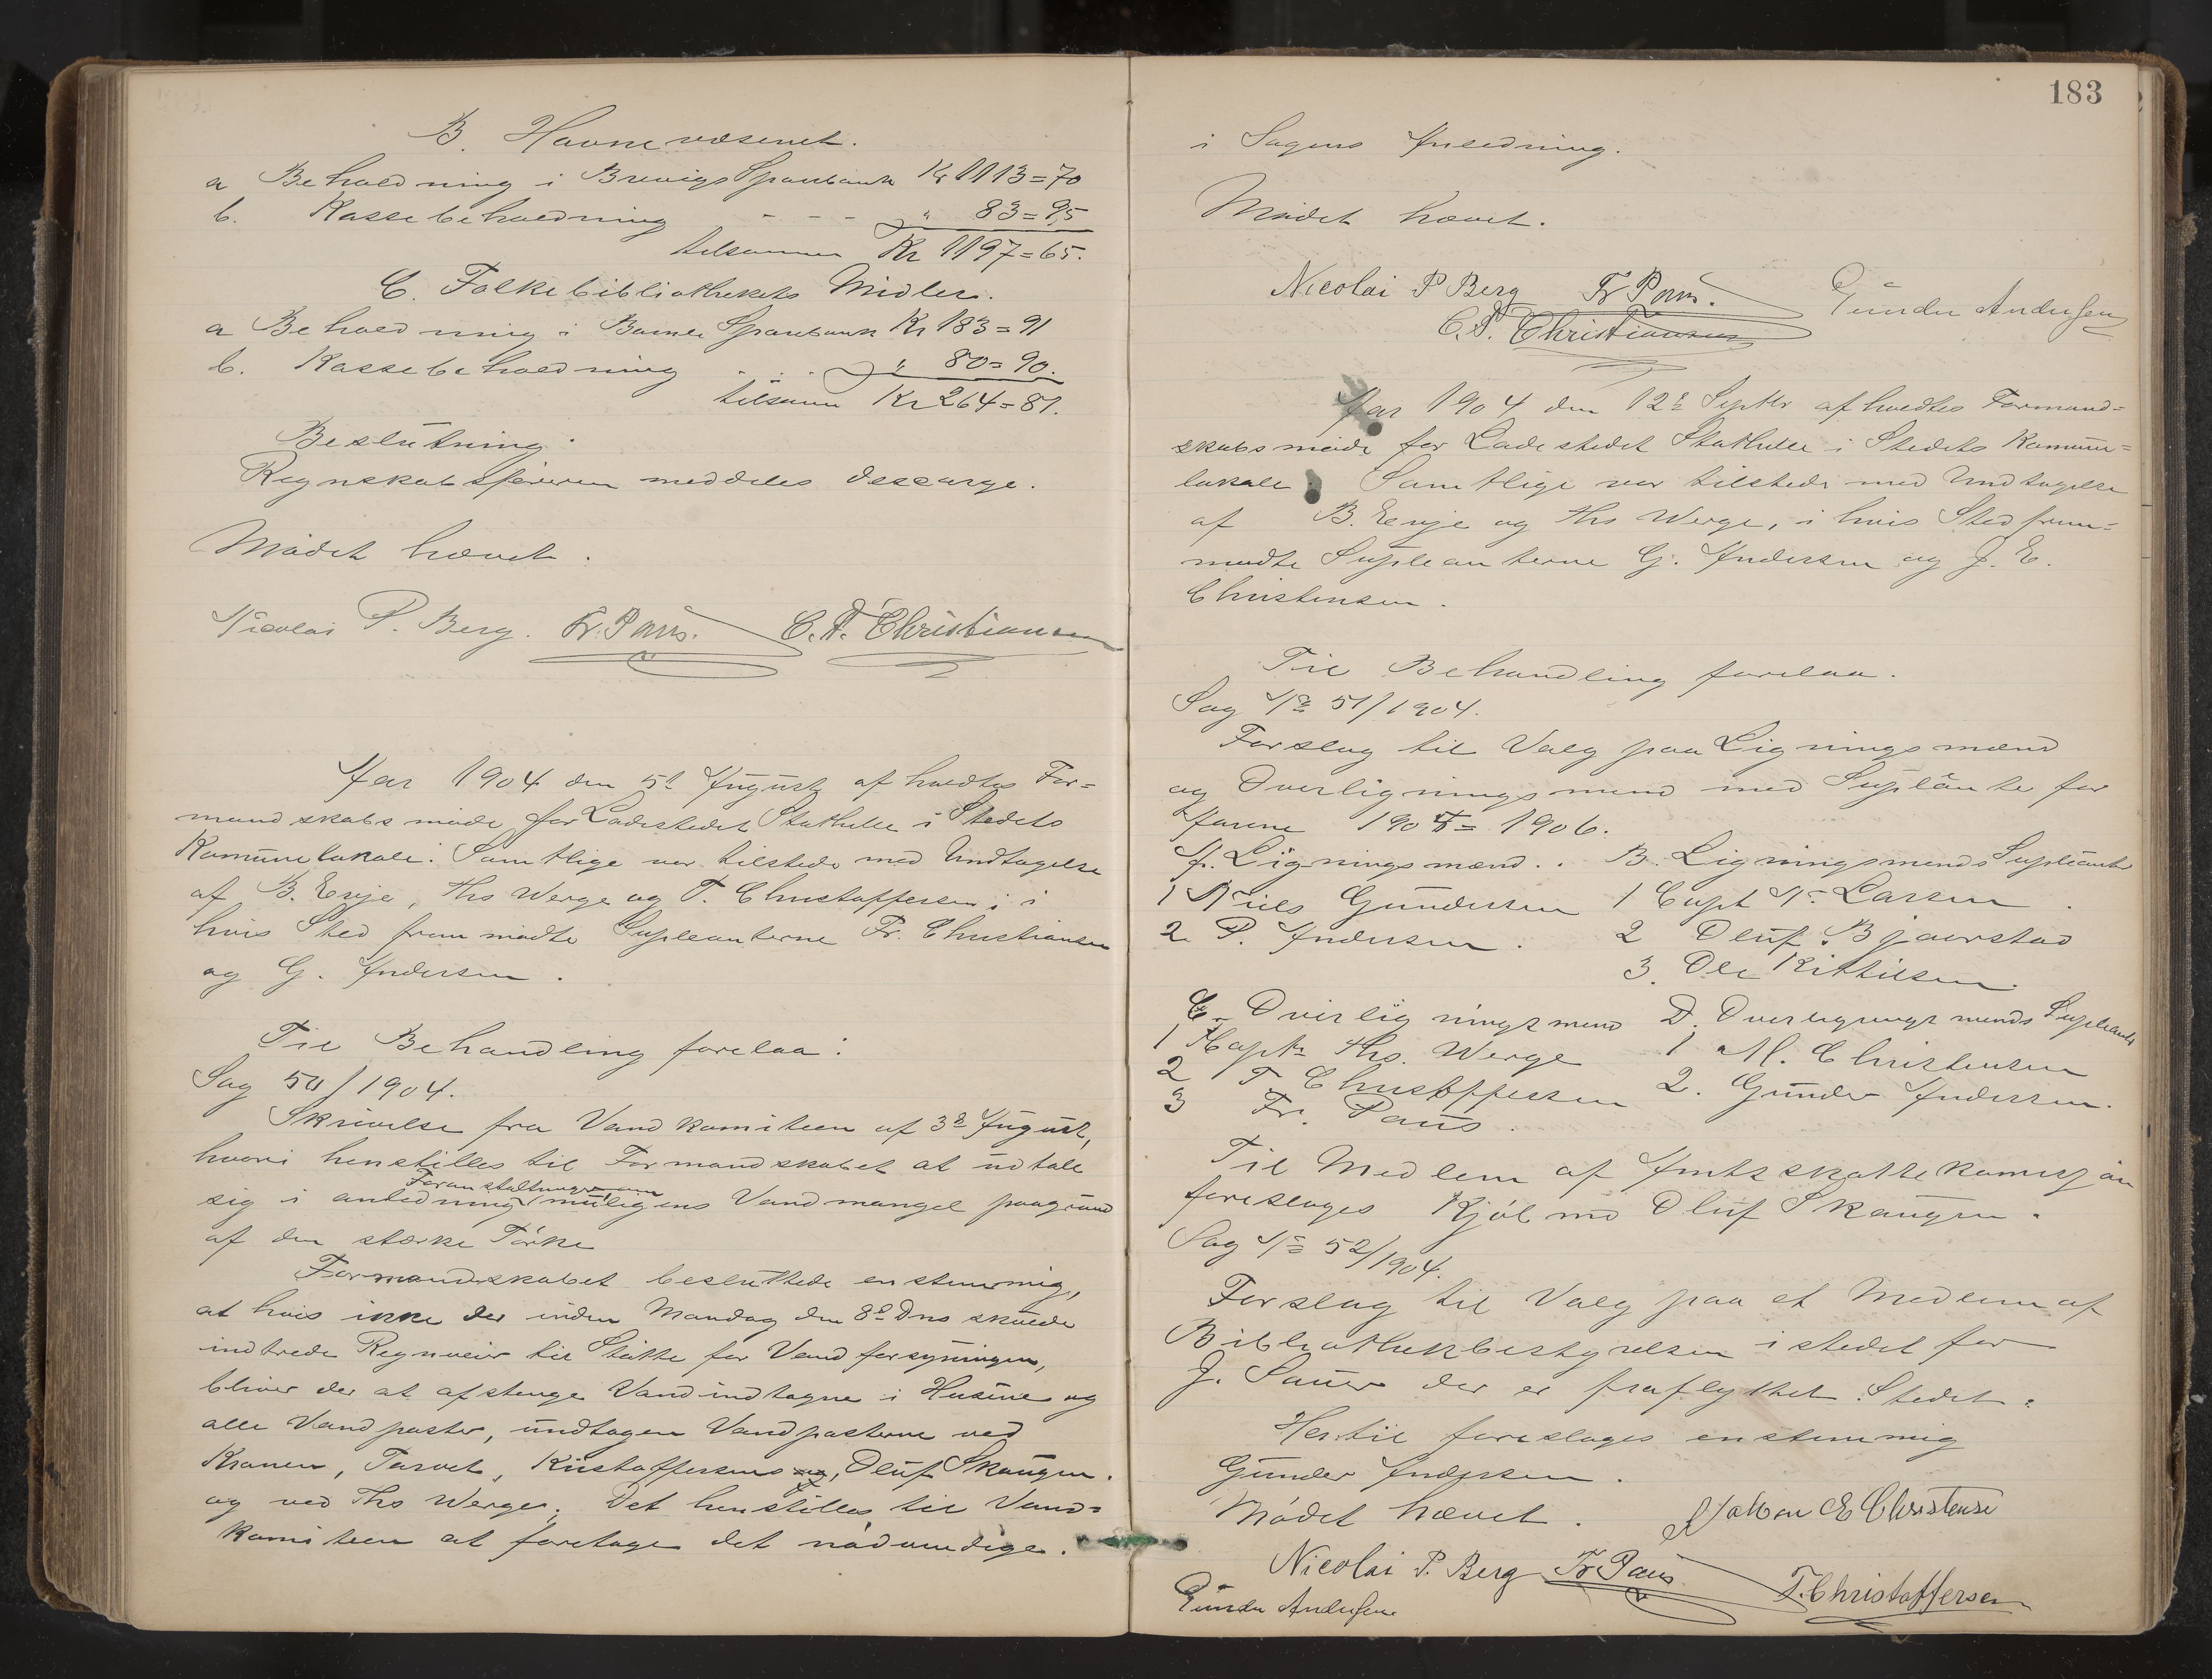 B. Havnevæsenet.
a Beholdning i Brevigs Sparebank Kr 1113=70
b. Kassebeholdning - - - " 83=95
tilsammen Kr 1197=65.
C. Folkebibliothekets Midler.
a Beholdning i Bamle Sparebank Kr 183=91
b. Kassebeholdning . . . " 80=90.
tilsamm Kr 264=81.
Beslutning:
Regnskabsføreren meddeles decarge.
Mødet hævet.
Nicolai P. Berg. Fr. Paus. C.F. Christiansen
Aar 1904 den 5t August afholdtes For=
mandskabsmøde for Ladestedet Stathelle i Stedets
Komunelokale. Samtlige var tilstede med Undtagelse
af B. Eeuje, Ths Werge og T. Christoffersen; i
hvis Sted fremmødte Supleanterne Fr. Christiansen
og G. Andersen.
Til Behandling forelaa:
Sag 50/1904.
Skrivelse fra Vandkomiteen af 3d August,
hvori henstilles til Formandskabet at udtale
Foranstaltninger
sig i anledning muligens Vandmangel paagrund
af den stærke Tørke
Formandskabet besluttede enstemmig,
at hvis ikke der inden Mandag den 8d Dns skulde
indtrede Regnveir til Støtte for Vandforsyningen,
bliver der at afstenge Vandindtagne i Husene og
alle Vandposter, undtagen Vandposterne ved
Kranen, Torvet, Kristoffersens og, Oluf Skaugen.
og ved Ths Werge. Det henstilles til Vand=
komiteen at foretage det nødvendige.
183
i Sagens Anledning.
Mødet hævet.
Nicolai P Berg Fr Paus. Gunder Andersen
C.F. Christiansen
Aar 1904 den 12te Septbr afholdtes Formand=
skabsmøde for Ladestedet Stathelle i Stedets Komune=
lokale. Samtlige var tilstede med Undtagelse
af B. Eeuje og Ths Werge, i hvis Sted frem=
mødte Supleanterne G. Andersen og J. E.
Christensen.
Til Behandling forelaa.
Sag No 51/1904.
Forslag til Valg paa Ligningsmænd
og Overligningsmænd med Suplänte for
Aarene 1905= 1906.
A. Ligningsmænd. . B. Ligningsmænds Supleanter
1 Niels Gundersen 1 Capt N. Larsen
2. P. Andersen. 2 Oluf Bjaerstad
3. Ole Kittilsen.
C. Overligningsmend D. Overligningsmends Supleanter
1 Kapt. Ths. Werge 1 M. Christensen
2 T. Christoffersen 2. Gunder Andersen.
3 Fr. Paus.
Til Medlem af Amtsskattekomisjon
foreslages Kjøbmd Oluf Skaugen.
Sag No 52/1904.
Forslag til Valg paa et Medlem af
Bibliothekbestyrelsen istedet for
J. Sauer der er fraflyttet Stedet.
Hertil foreslages enstemmig
Gunder Andersen.
Mødet hævet. Johan E Christensen
Nicolai P. Berg Fr Paus T. Christoffersen
Gunder Andersen